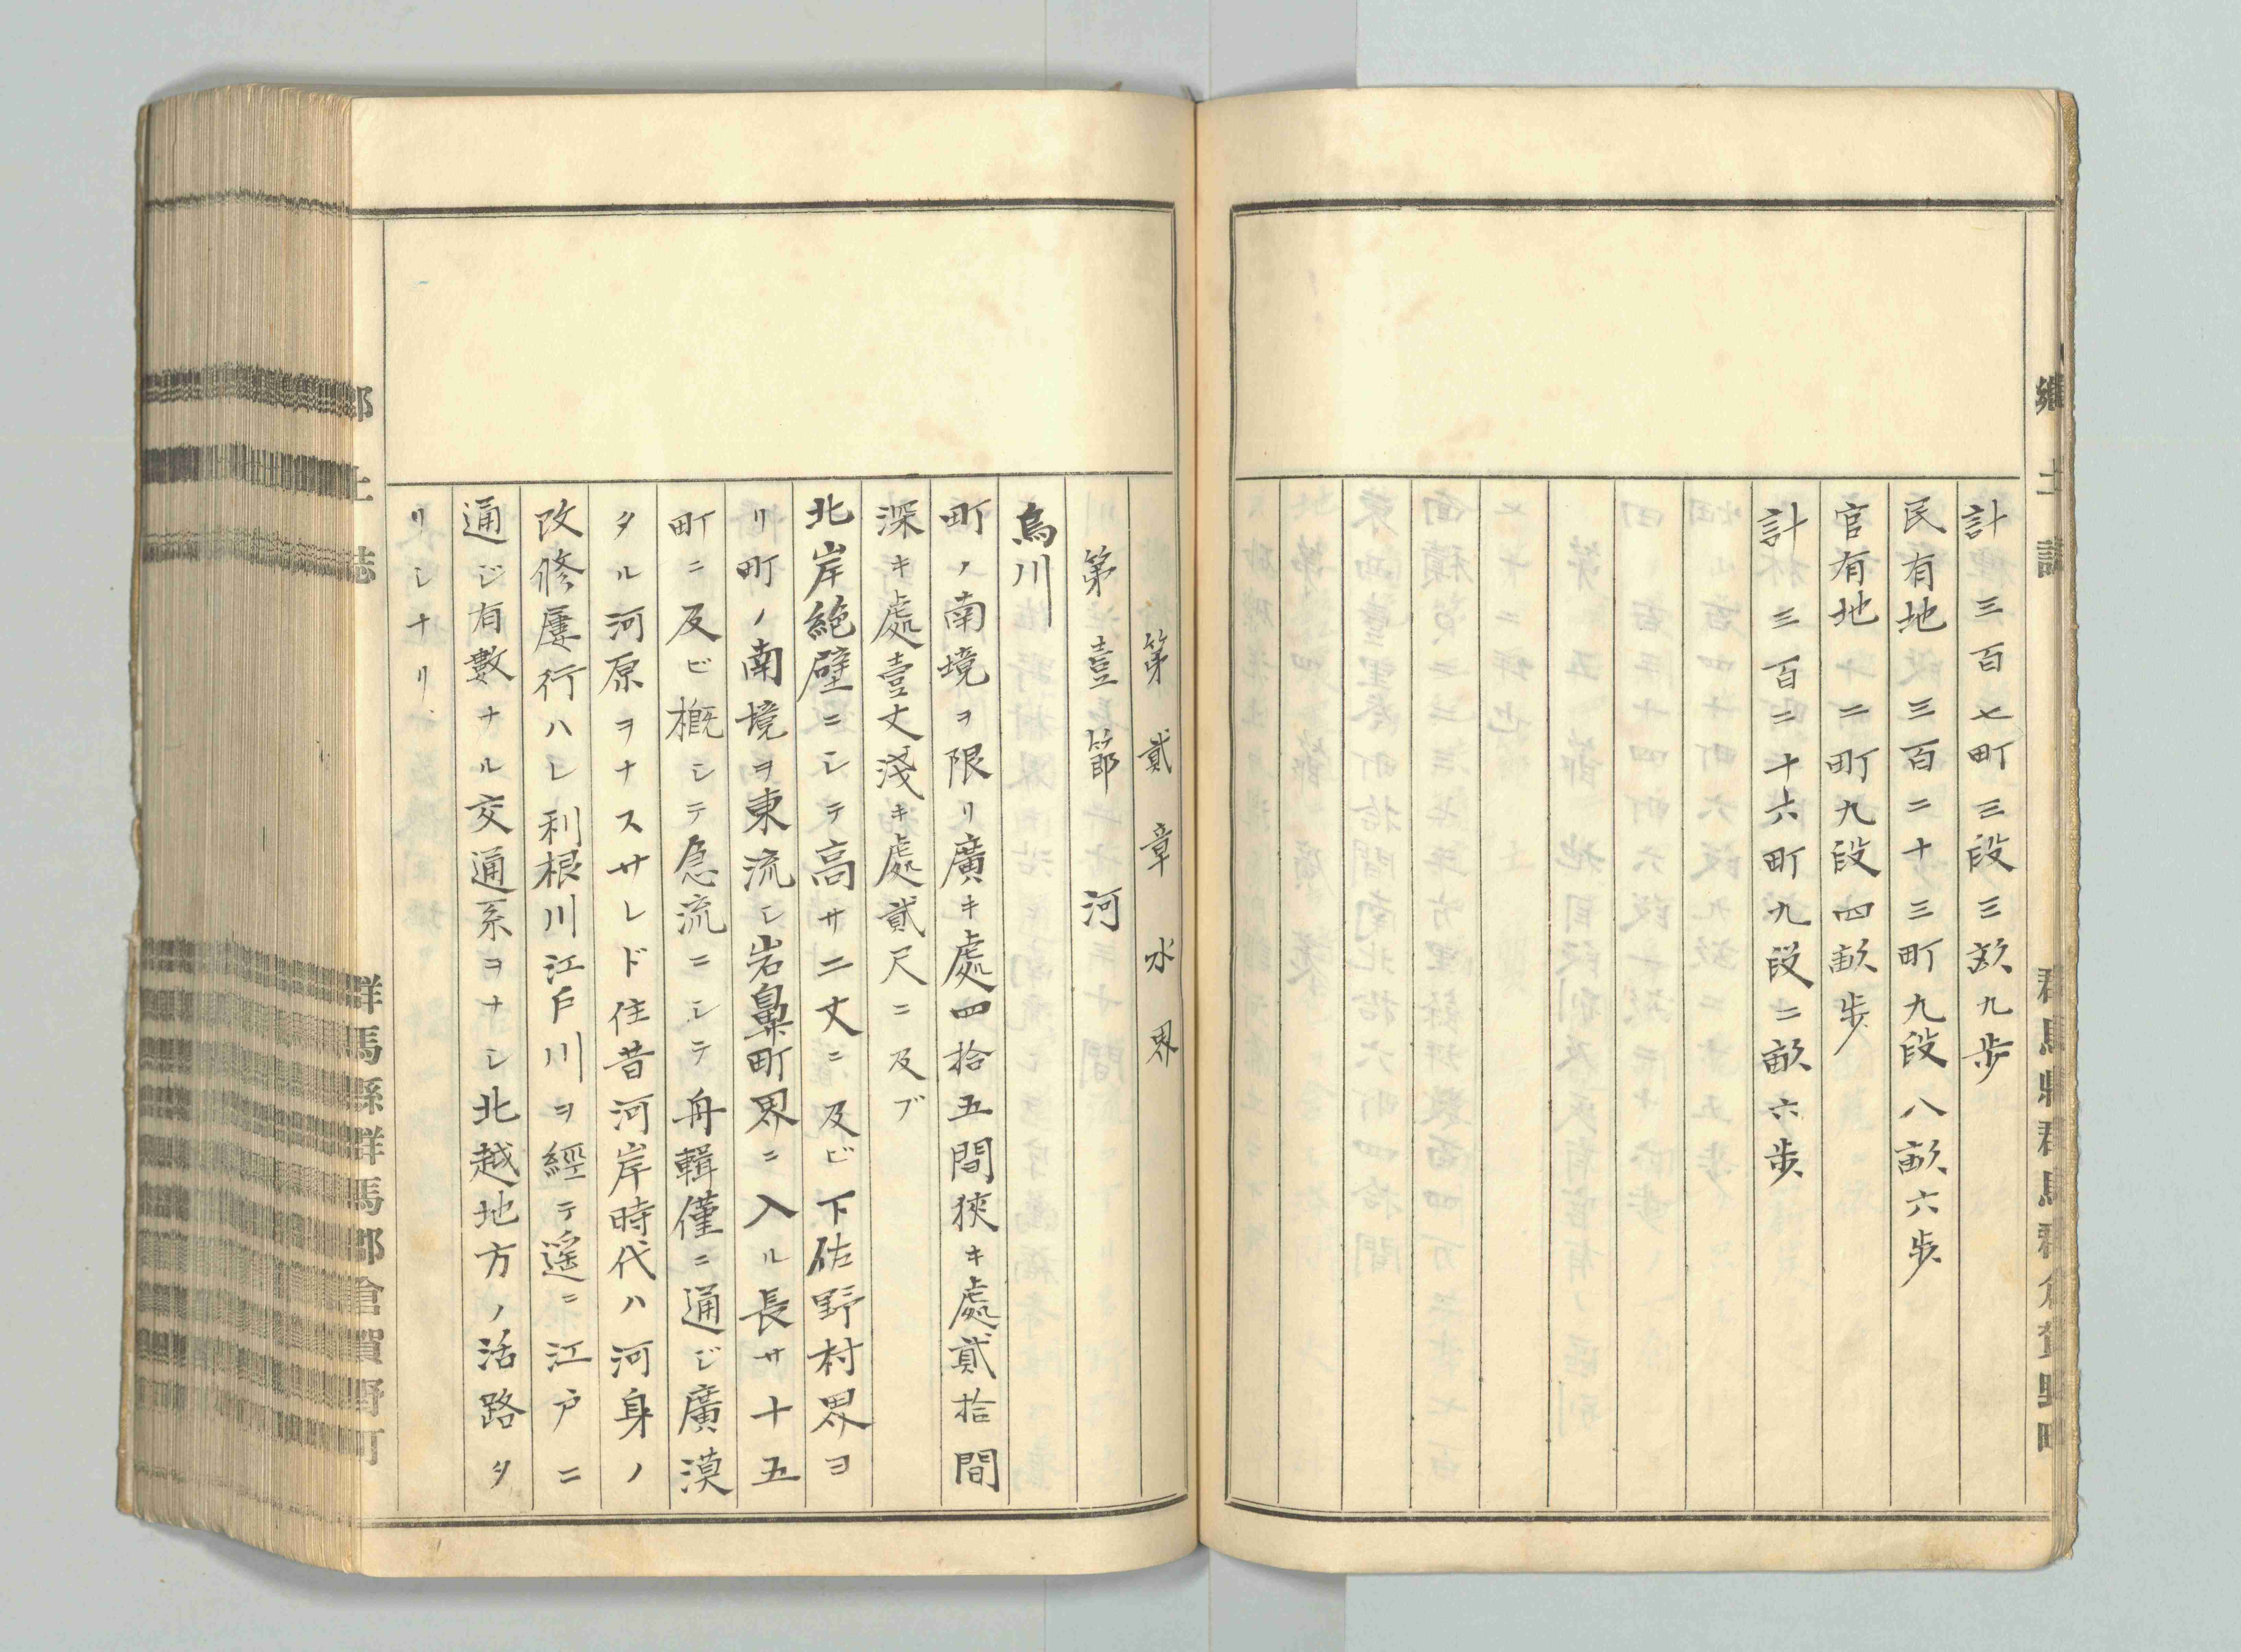 郷土誌
計三百七町三段三畝九歩
民有地三百二十三町九段八畝六歩
官有地二町九段四畝歩
計三百二十六町九段二畝六歩
第貳章水界
第壹節河
烏川
町ノ南境ヲ限リ廣キ處四拾五間狹キ處貳拾間
深キ處壹丈淺キ處貳尺ニ及ブ
北岸絶壁ニシテ高サ二丈ニ及ビ下佐野村界ヨ
リ町ノ南境ヲ東流シ岩鼻町界ニ入ル長サ十五
町ニ及ビ概シテ急流ニシテ舟輯僅ニ通ジ廣漠
タル河原ヲナスサレド住昔河岸時代ハ河身ノ
改修屢行ハレ利根川江戸川ヲ經テ遥ニ江戸ニ
通ジ有數ナル交通系ヲナシ北越地方ノ活路タ
リシナリ
郷土誌
群馬縣群馬郡倉賀野町